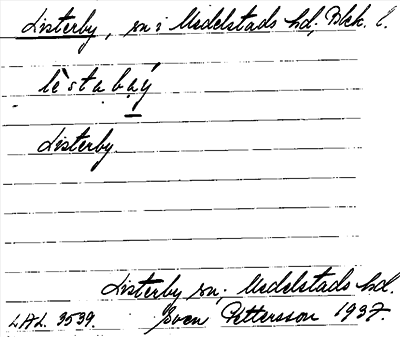 Listerby, sn i Medelstads hd; Blek. l.
lèstabạý
Listerby.
Listerby sn; Medelstads hd.
LAL. 3539. Sven Pettersson 1937.